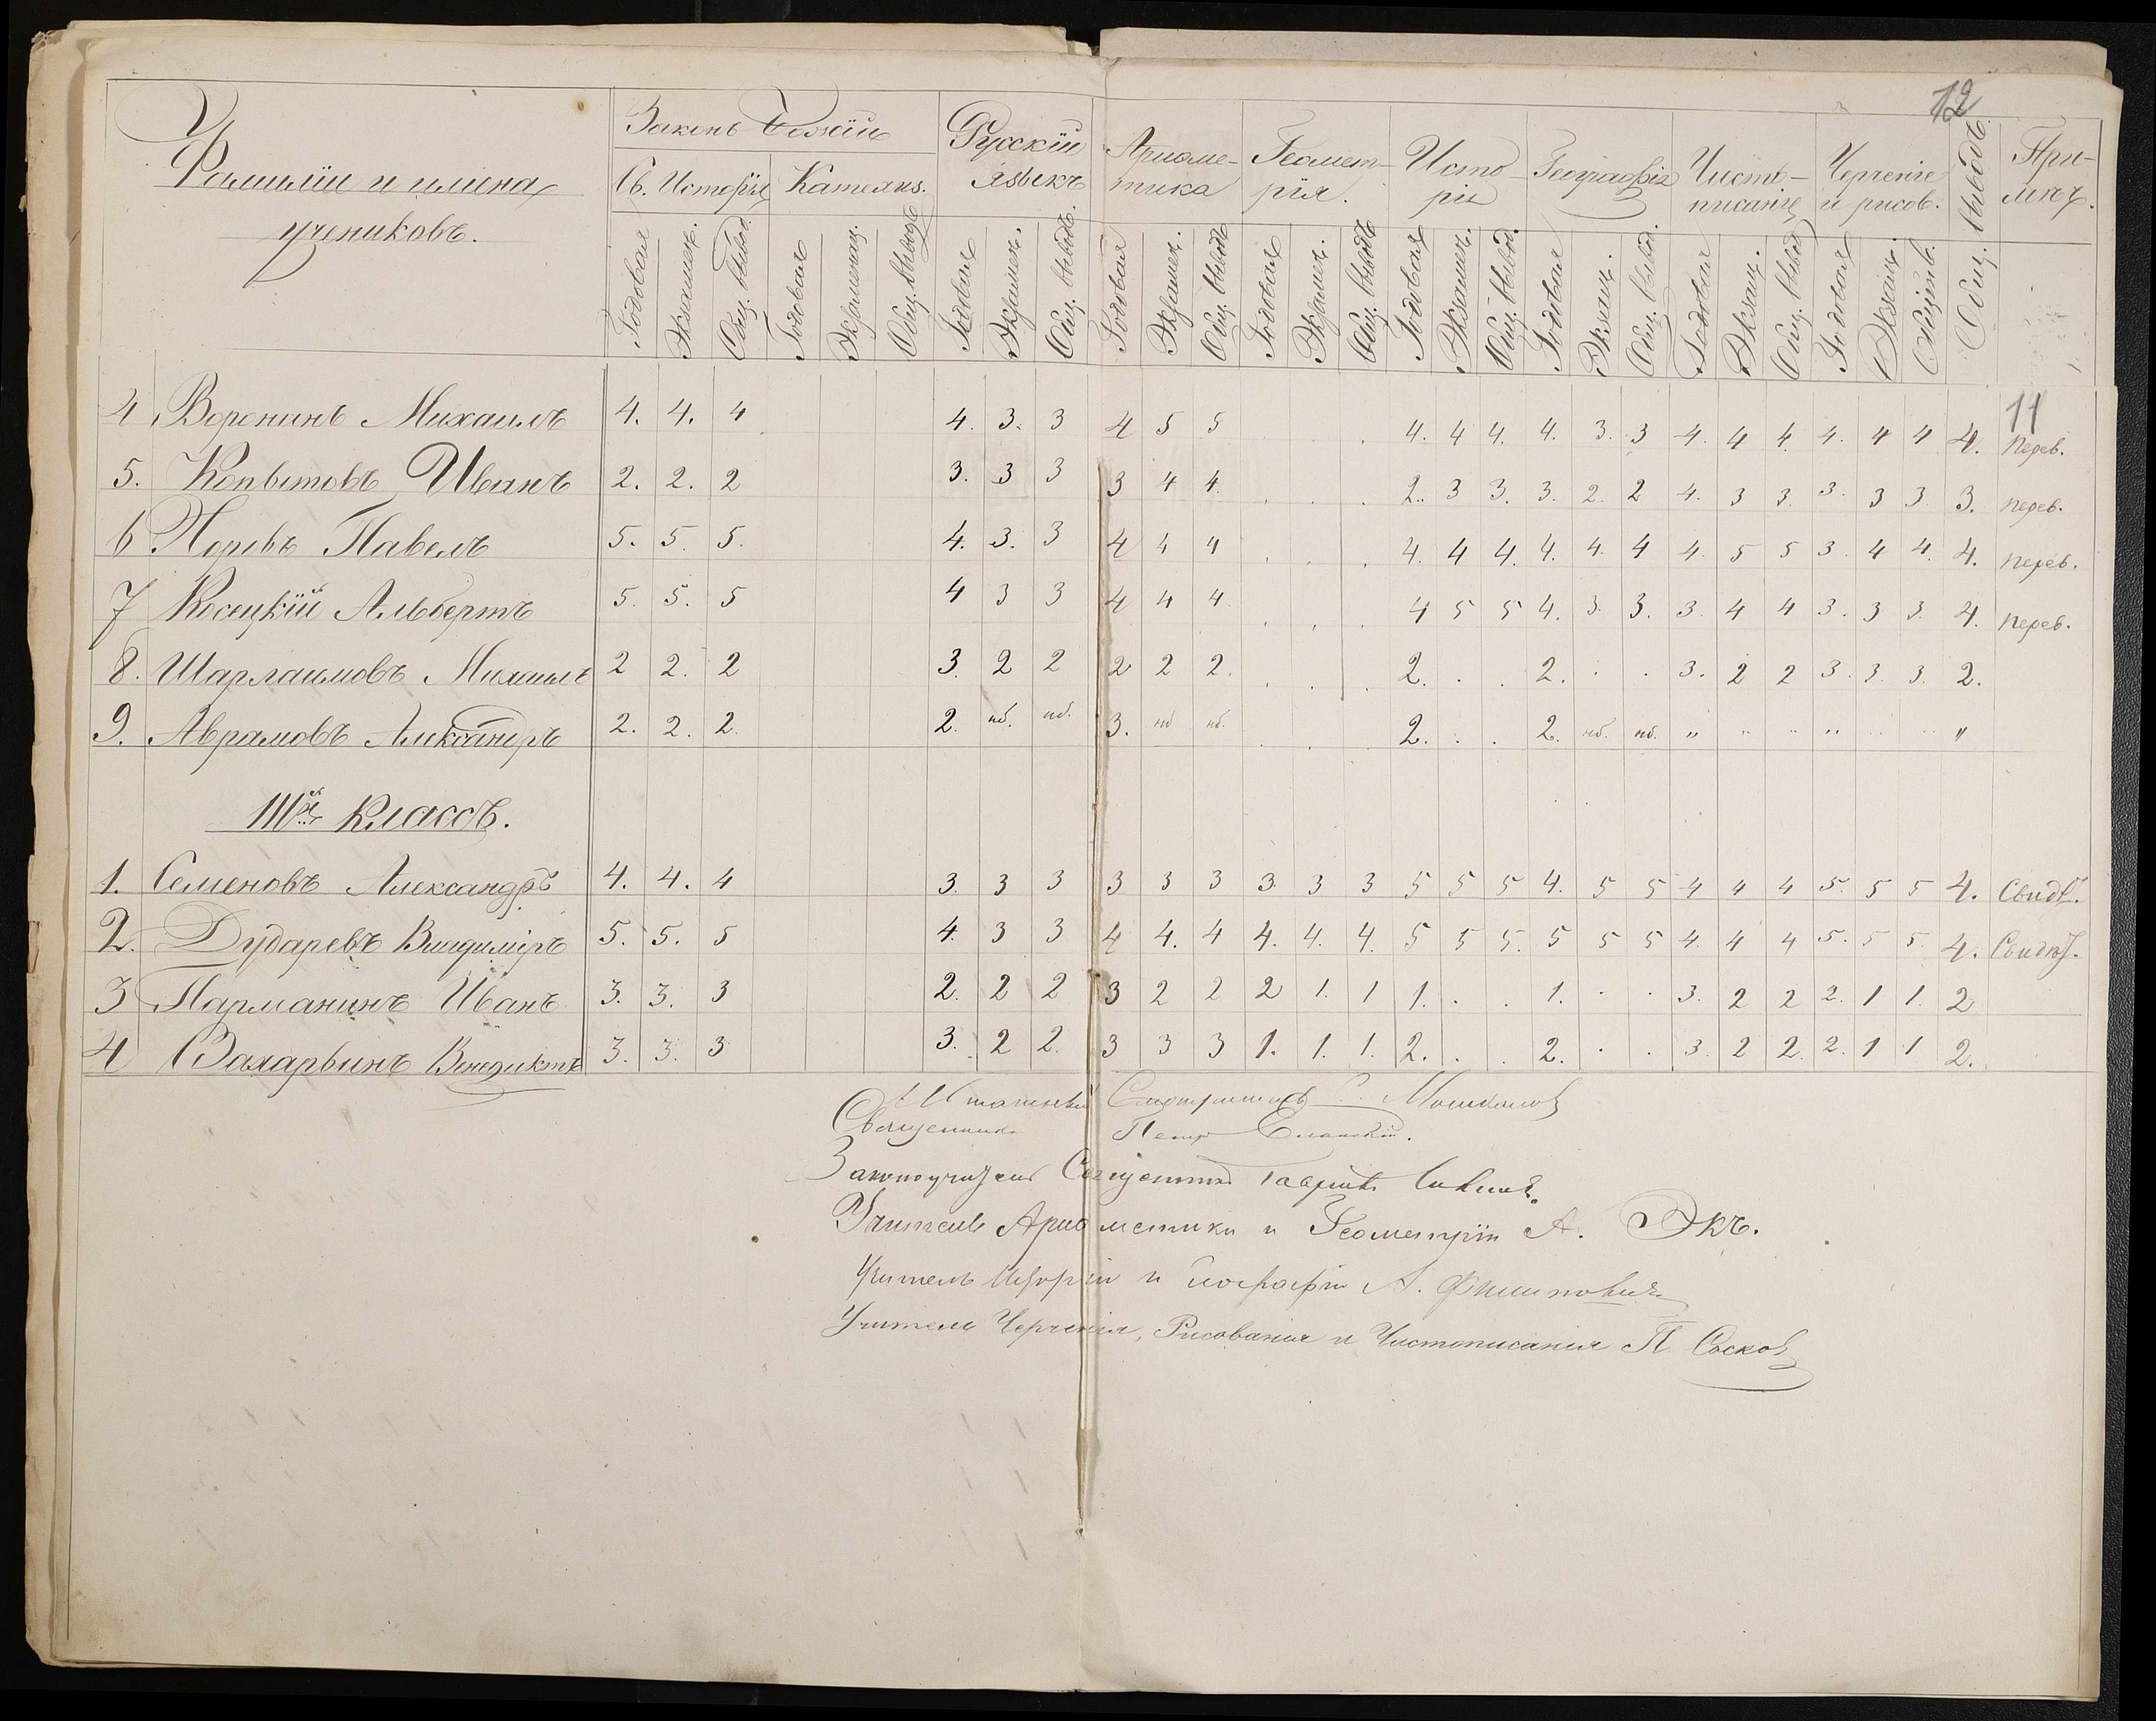 12
Фамиліи и имена
учениковъ.
Законъ Божій
Русскій
языкъ
Ариѳме-
тика
Геомет-
рія.
Исто-
рія
Географія
Чисто-
писаніе
Черченіе
и рисов.
Общ. выводъ
При-
мѣч.
Св. Исторія Катехиз.
Годовая Экзамен. Общ. вывод. Годовая Экзаменац. Общ. выводъ Годовая Экзамен. Общ. выводъ. Годовая Экзамен. Общ. выводъ Годовая Экзамен. Общ. выводъ Годовая Экзамен. Общ. вывод. Годовая Экзац. Общ. вывод. Годовая Экзац. Общ. вывод Годовая Экзац. Общ. в.
11
4. Воронинъ Михаилъ 4. 4. 4 4. 3. 3 4 5 5 4. 4 4. 4. 3. 3 4. 4 4. 4. 4 4 4. перев.
5. Копытовъ Иванъ 2. 2. 2 3. 3 3 3 4 4. 2. 3 3. 3. 2. 2 4. 3 3. 3. 3 3. 3. перев.
6 Павелъ 5. 5. 5. 4. 3. 3 4 4 4 4. 4 4. 4. 4. 4 4. 5 5 3. 4 4. 4. перев.
7 Косецкій Альбертъ 5. 5. 5 4 3 3 4 4 4. 4 5 5 4. 3. 3. 3. 4 4 3. 3 3. 4. перев.
8. Шарлаимовъ Михаилъ 2 2. 2 3. 2 2 2 2 2. 2. . . 2. . . 3. 2 2 3. 3. 3. 2.
9. Аврамовъ Александръ 2. 2. 2. 2. нб. нб. 3. нб нб. 2. . . 2. нб. нб. " " " " " " "
IIIй классъ.
1. Семеновъ Александръ 4. 4. 4 3. 3 3 3 3 3 3. 3 3 5 5 5 4. 5 5 4 4 4 5. 5 5 4. Свидѣт.
2. Дударевъ Владиміръ 5. 5. 5 4. 3 3 4 4. 4 4. 4. 4. 5 5 5. 5 5 5 4. 4 4 5. 5 5. 4. Свидѣт.
3 Парманинъ Иванъ 3. 3. 3 2. 2 2 3 2 2 2 1. 1 1. . . 1. . . 3. 2 2 2. 1 1. 2
4 Захарьинъ Венедиктъ 3. 3. 3 3. 2 2. 3 3 3 1. 1. 1. 2. . . 2. . . 3. 2 2. 2. 1 1 2.
Штатный Смотритель С. Мошколов
Священникъ Петръ Еланскій.
Законоучитель Священникъ Гавріилъ
Учитель Ариѳметики и Геометріи А. Экъ.
Учитель Исторіи и Географіи А. Филиповичъ
Учитель Черченія, Рисованія и Чистописанія П. Сосков